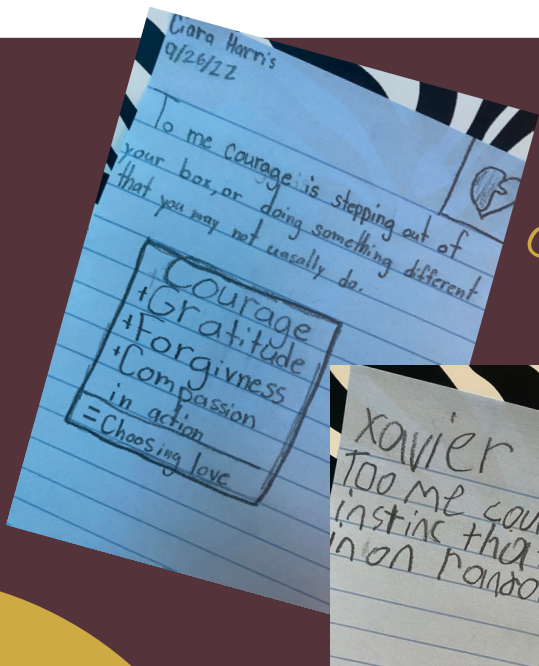 Ciara Harris
9/26/22
To me courage is stepping out of
your box, or doing something different
that you may not uasally do.
Courage
+Gratitude
+Forgivness
+Compassion
in action
=Choosing love
xavier
Too me cou
instinc tha
in on rando